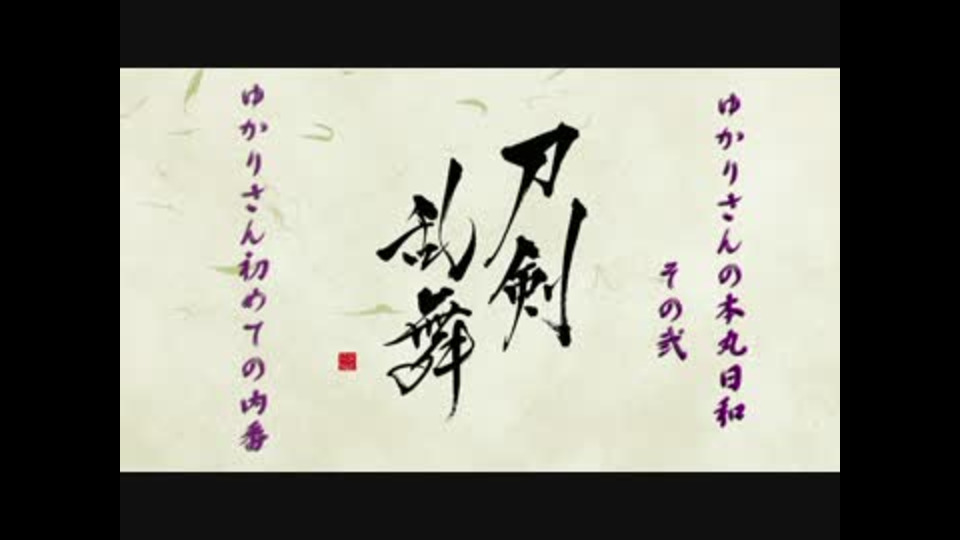 ゆかりさんの本丸日和
その弐
刀剣
乱舞
ゆかりさん初めての内番